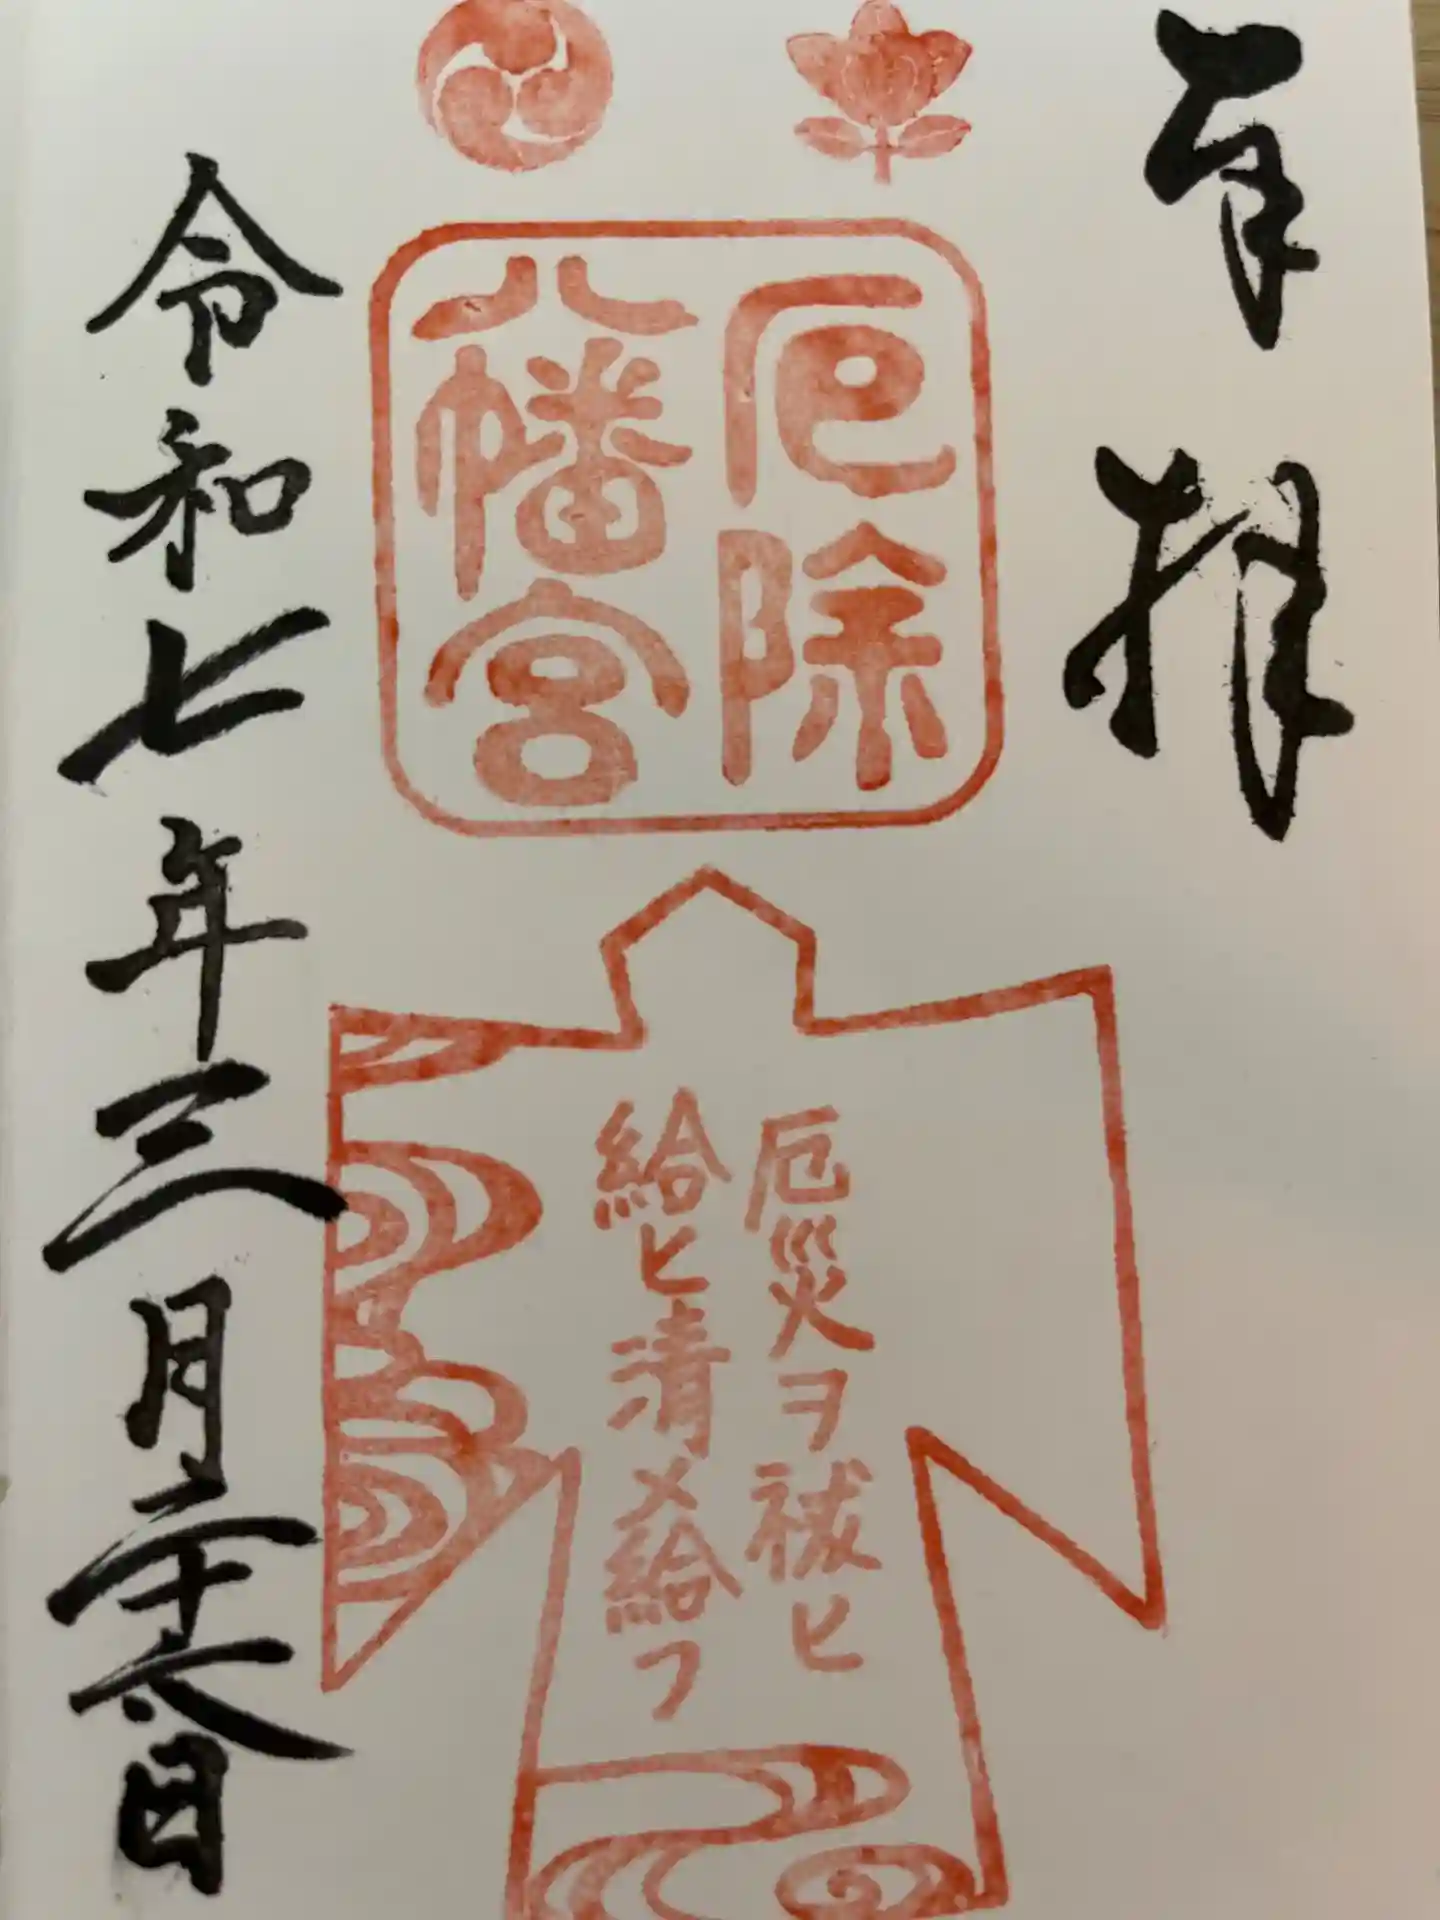 奉拝
厄除
八幡宮
厄災ヲ祓ヒ
給ヒ清メ給フ
令和七年三月二十六日